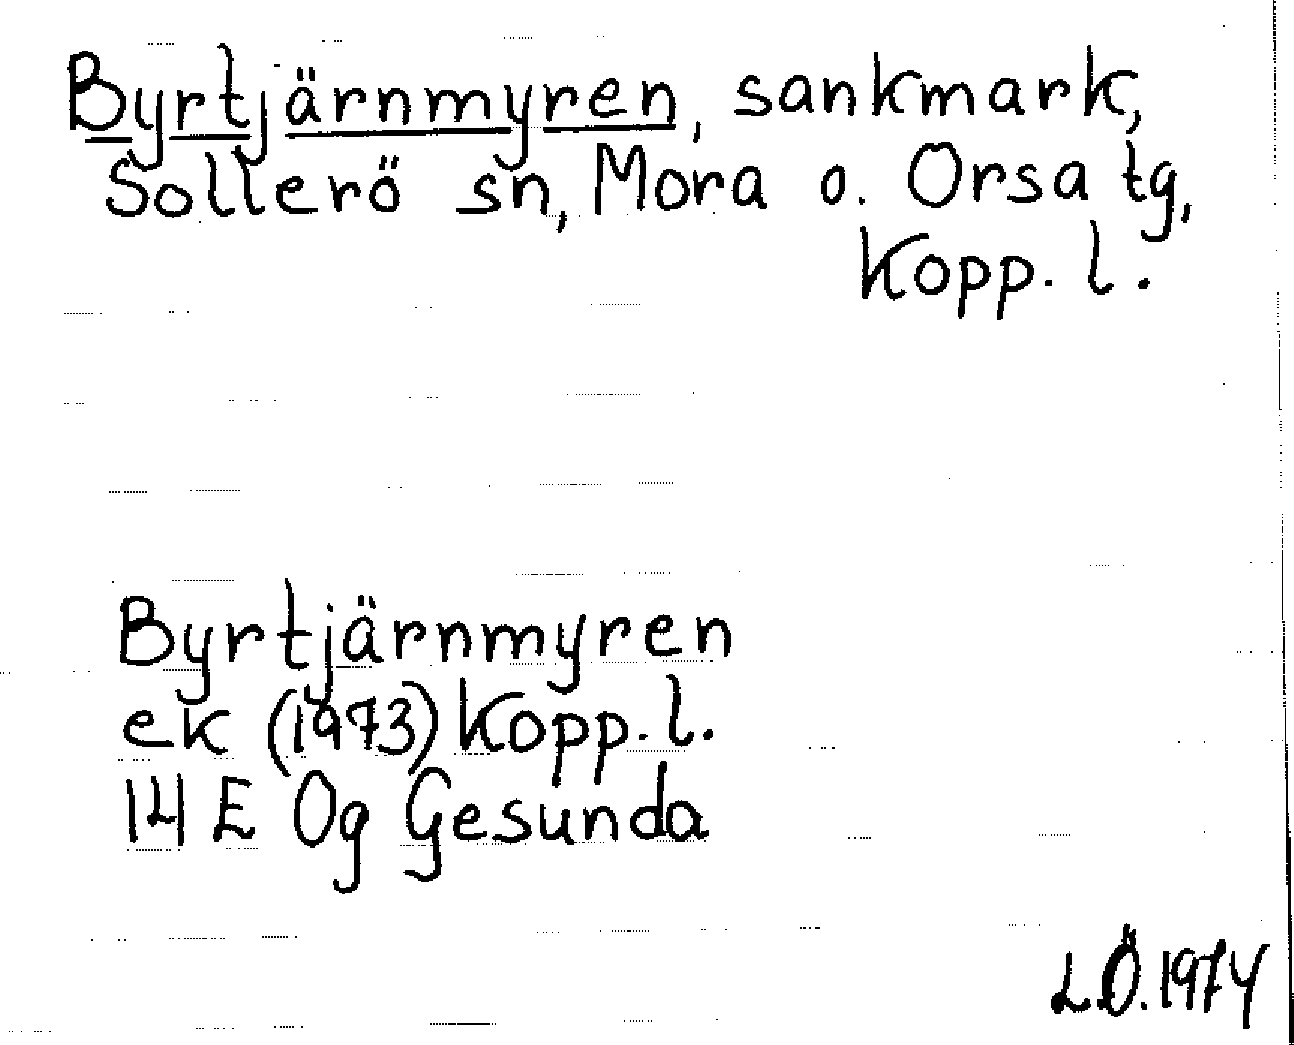 Byrtjärnmyren, sankmark,
Sollerö sn, Mora o. Orsa tg,
Kopp. l.
Byrtjärnmyren
ek (1973) Kopp. l.
14 E 0g Gesunda
L.Ö. 1974